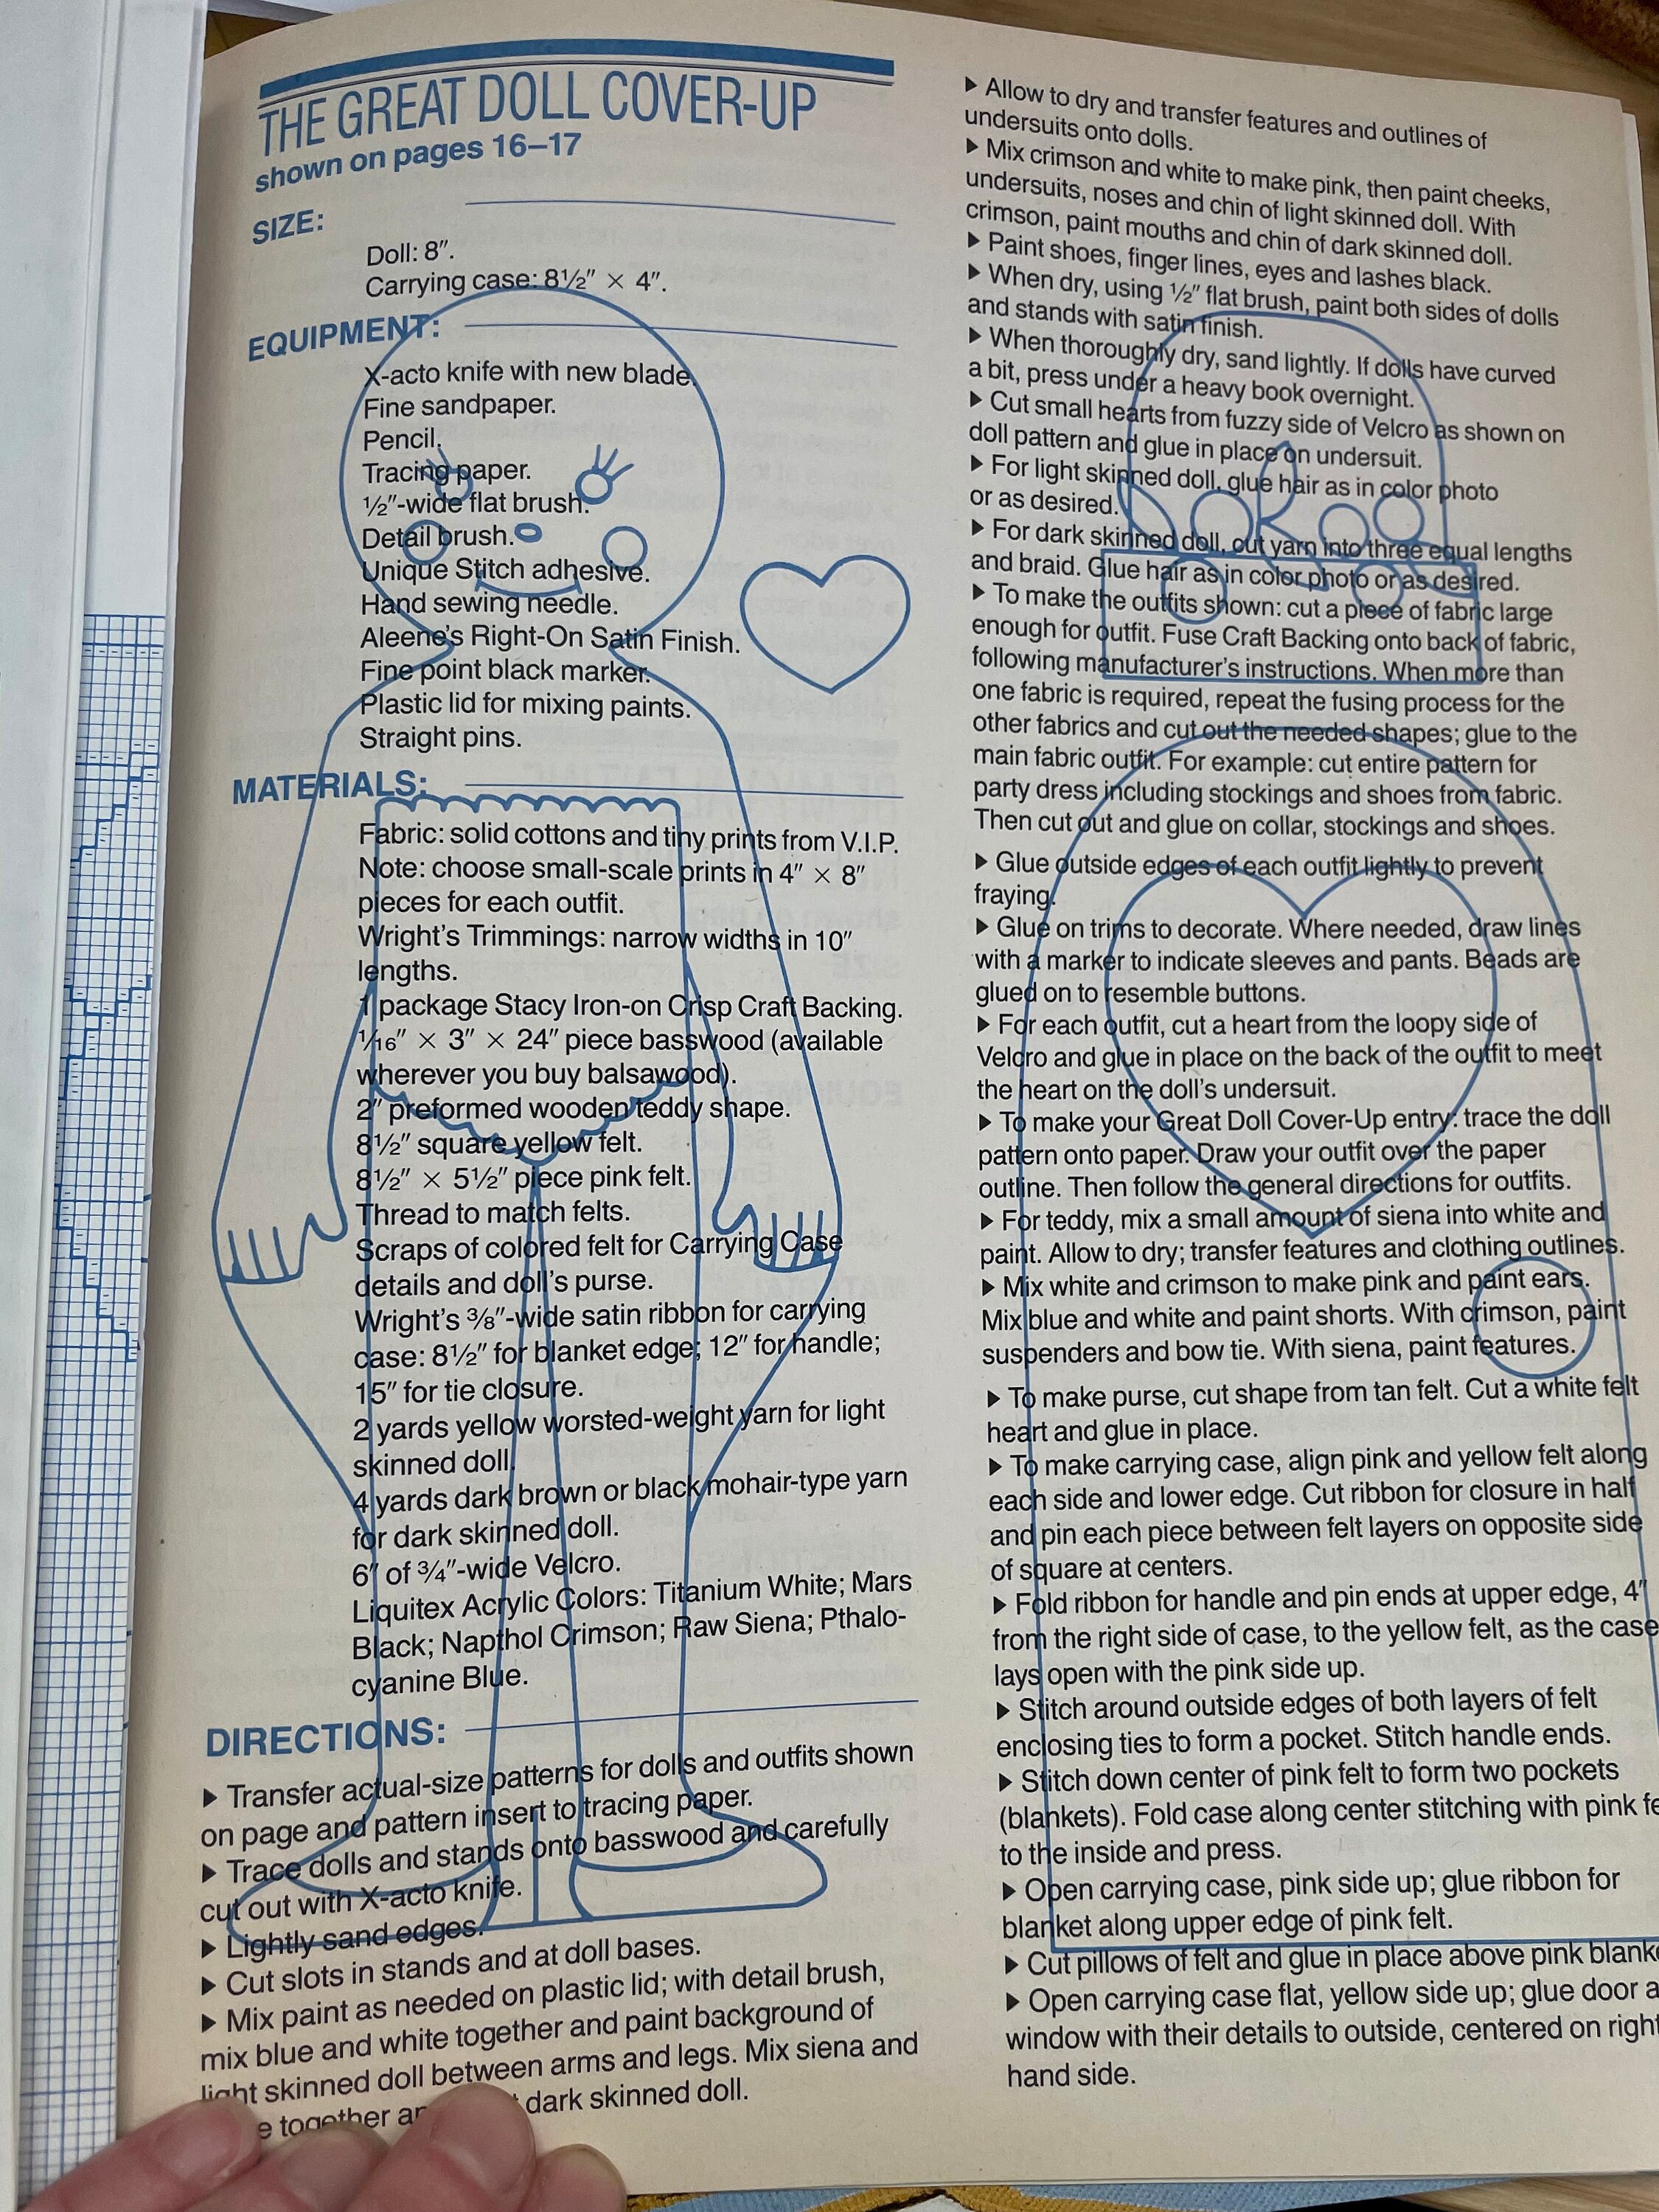 THE GREAT DOLL COVER-UP
shown on pages 16–17
SIZE:
Doll: 8″.
Carrying case: 8½″ × 4″.
EQUIPMENT:
X-acto knife with new blade.
Fine sandpaper.
Pencil.
Tracing paper.
½″-wide flat brush.
Detail brush.
Unique Stitch adhesive.
Hand sewing needle.
Aleene's Right-On Satin Finish.
Fine point black marker.
Plastic lid for mixing paints.
Straight pins.
MATERIALS:
Fabric: solid cottons and tiny prints from V.I.P.
Note: choose small-scale prints in 4″ × 8″
pieces for each outfit.
Wright's Trimmings: narrow widths in 10″
lengths.
1 package Stacy Iron-on Crisp Craft Backing.
1/16″ × 3″ × 24″ piece basswood (available
wherever you buy balsawood).
2″ preformed wooden teddy shape.
8½″ square yellow felt.
8½″ × 5½″ piece pink felt.
Thread to match felts.
Scraps of colored felt for Carrying Case
details and doll's purse.
Wright's ⅜″-wide satin ribbon for carrying
case: 8½″ for blanket edge; 12″ for handle;
15″ for tie closure.
2 yards yellow worsted-weight yarn for light
skinned doll.
4 yards dark brown or black mohair-type yarn
for dark skinned doll.
6″ of ¾″-wide Velcro.
Liquitex Acrylic Colors: Titanium White; Mars
Black; Napthol Crimson; Raw Siena; Pthalo-
cyanine Blue.
DIRECTIONS:
▶ Transfer actual-size patterns for dolls and outfits shown
on page and pattern insert to tracing paper.
▶ Trace dolls and stands onto basswood and carefully
cut out with X-acto knife.
▶ Lightly sand edges.
▶ Cut slots in stands and at doll bases.
▶ Mix paint as needed on plastic lid; with detail brush,
mix blue and white together and paint background of
light skinned doll between arms and legs. Mix siena and
together dark skinned doll.
▶ Allow to dry and transfer features and outlines of
undersuits onto dolls.
▶ Mix crimson and white to make pink, then paint cheeks,
undersuits, noses and chin of light skinned doll. With
crimson, paint mouths and chin of dark skinned doll.
▶ Paint shoes, finger lines, eyes and lashes black.
▶ When dry, using ½″ flat brush, paint both sides of dolls
and stands with satin finish.
▶ When thoroughly dry, sand lightly. If dolls have curved
a bit, press under a heavy book overnight.
▶ Cut small hearts from fuzzy side of Velcro as shown on
doll pattern and glue in place on undersuit.
▶ For light skinned doll, glue hair as in color photo
or as desired.
▶ For dark skinned doll, cut yarn into three equal lengths
and braid. Glue hair as in color photo or as desired.
▶ To make the outfits shown: cut a piece of fabric large
enough for outfit. Fuse Craft Backing onto back of fabric,
following manufacturer's instructions. When more than
one fabric is required, repeat the fusing process for the
other fabrics and cut out the needed shapes; glue to the
main fabric outfit. For example: cut entire pattern for
party dress including stockings and shoes from fabric.
Then cut out and glue on collar, stockings and shoes.
▶ Glue outside edges of each outfit lightly to prevent
fraying.
▶ Glue on trims to decorate. Where needed, draw lines
with a marker to indicate sleeves and pants. Beads are
glued on to resemble buttons.
▶ For each outfit, cut a heart from the loopy side of
Velcro and glue in place on the back of the outfit to meet
the heart on the doll's undersuit.
▶ To make your Great Doll Cover-Up entry: trace the doll
pattern onto paper. Draw your outfit over the paper
outline. Then follow the general directions for outfits.
▶ For teddy, mix a small amount of siena into white and
paint. Allow to dry; transfer features and clothing outlines.
▶ Mix white and crimson to make pink and paint ears.
Mix blue and white and paint shorts. With crimson, paint
suspenders and bow tie. With siena, paint features.
▶ To make purse, cut shape from tan felt. Cut a white felt
heart and glue in place.
▶ To make carrying case, align pink and yellow felt along
each side and lower edge. Cut ribbon for closure in half
and pin each piece between felt layers on opposite side
of square at centers.
▶ Fold ribbon for handle and pin ends at upper edge, 4″
from the right side of case, to the yellow felt, as the case
lays open with the pink side up.
▶ Stitch around outside edges of both layers of felt
enclosing ties to form a pocket. Stitch handle ends.
▶ Stitch down center of pink felt to form two pockets
(blankets). Fold case along center stitching with pink fe
to the inside and press.
▶ Open carrying case, pink side up; glue ribbon for
blanket along upper edge of pink felt.
▶ Cut pillows of felt and glue in place above pink blank
▶ Open carrying case flat, yellow side up; glue door a
window with their details to outside, centered on right
hand side.